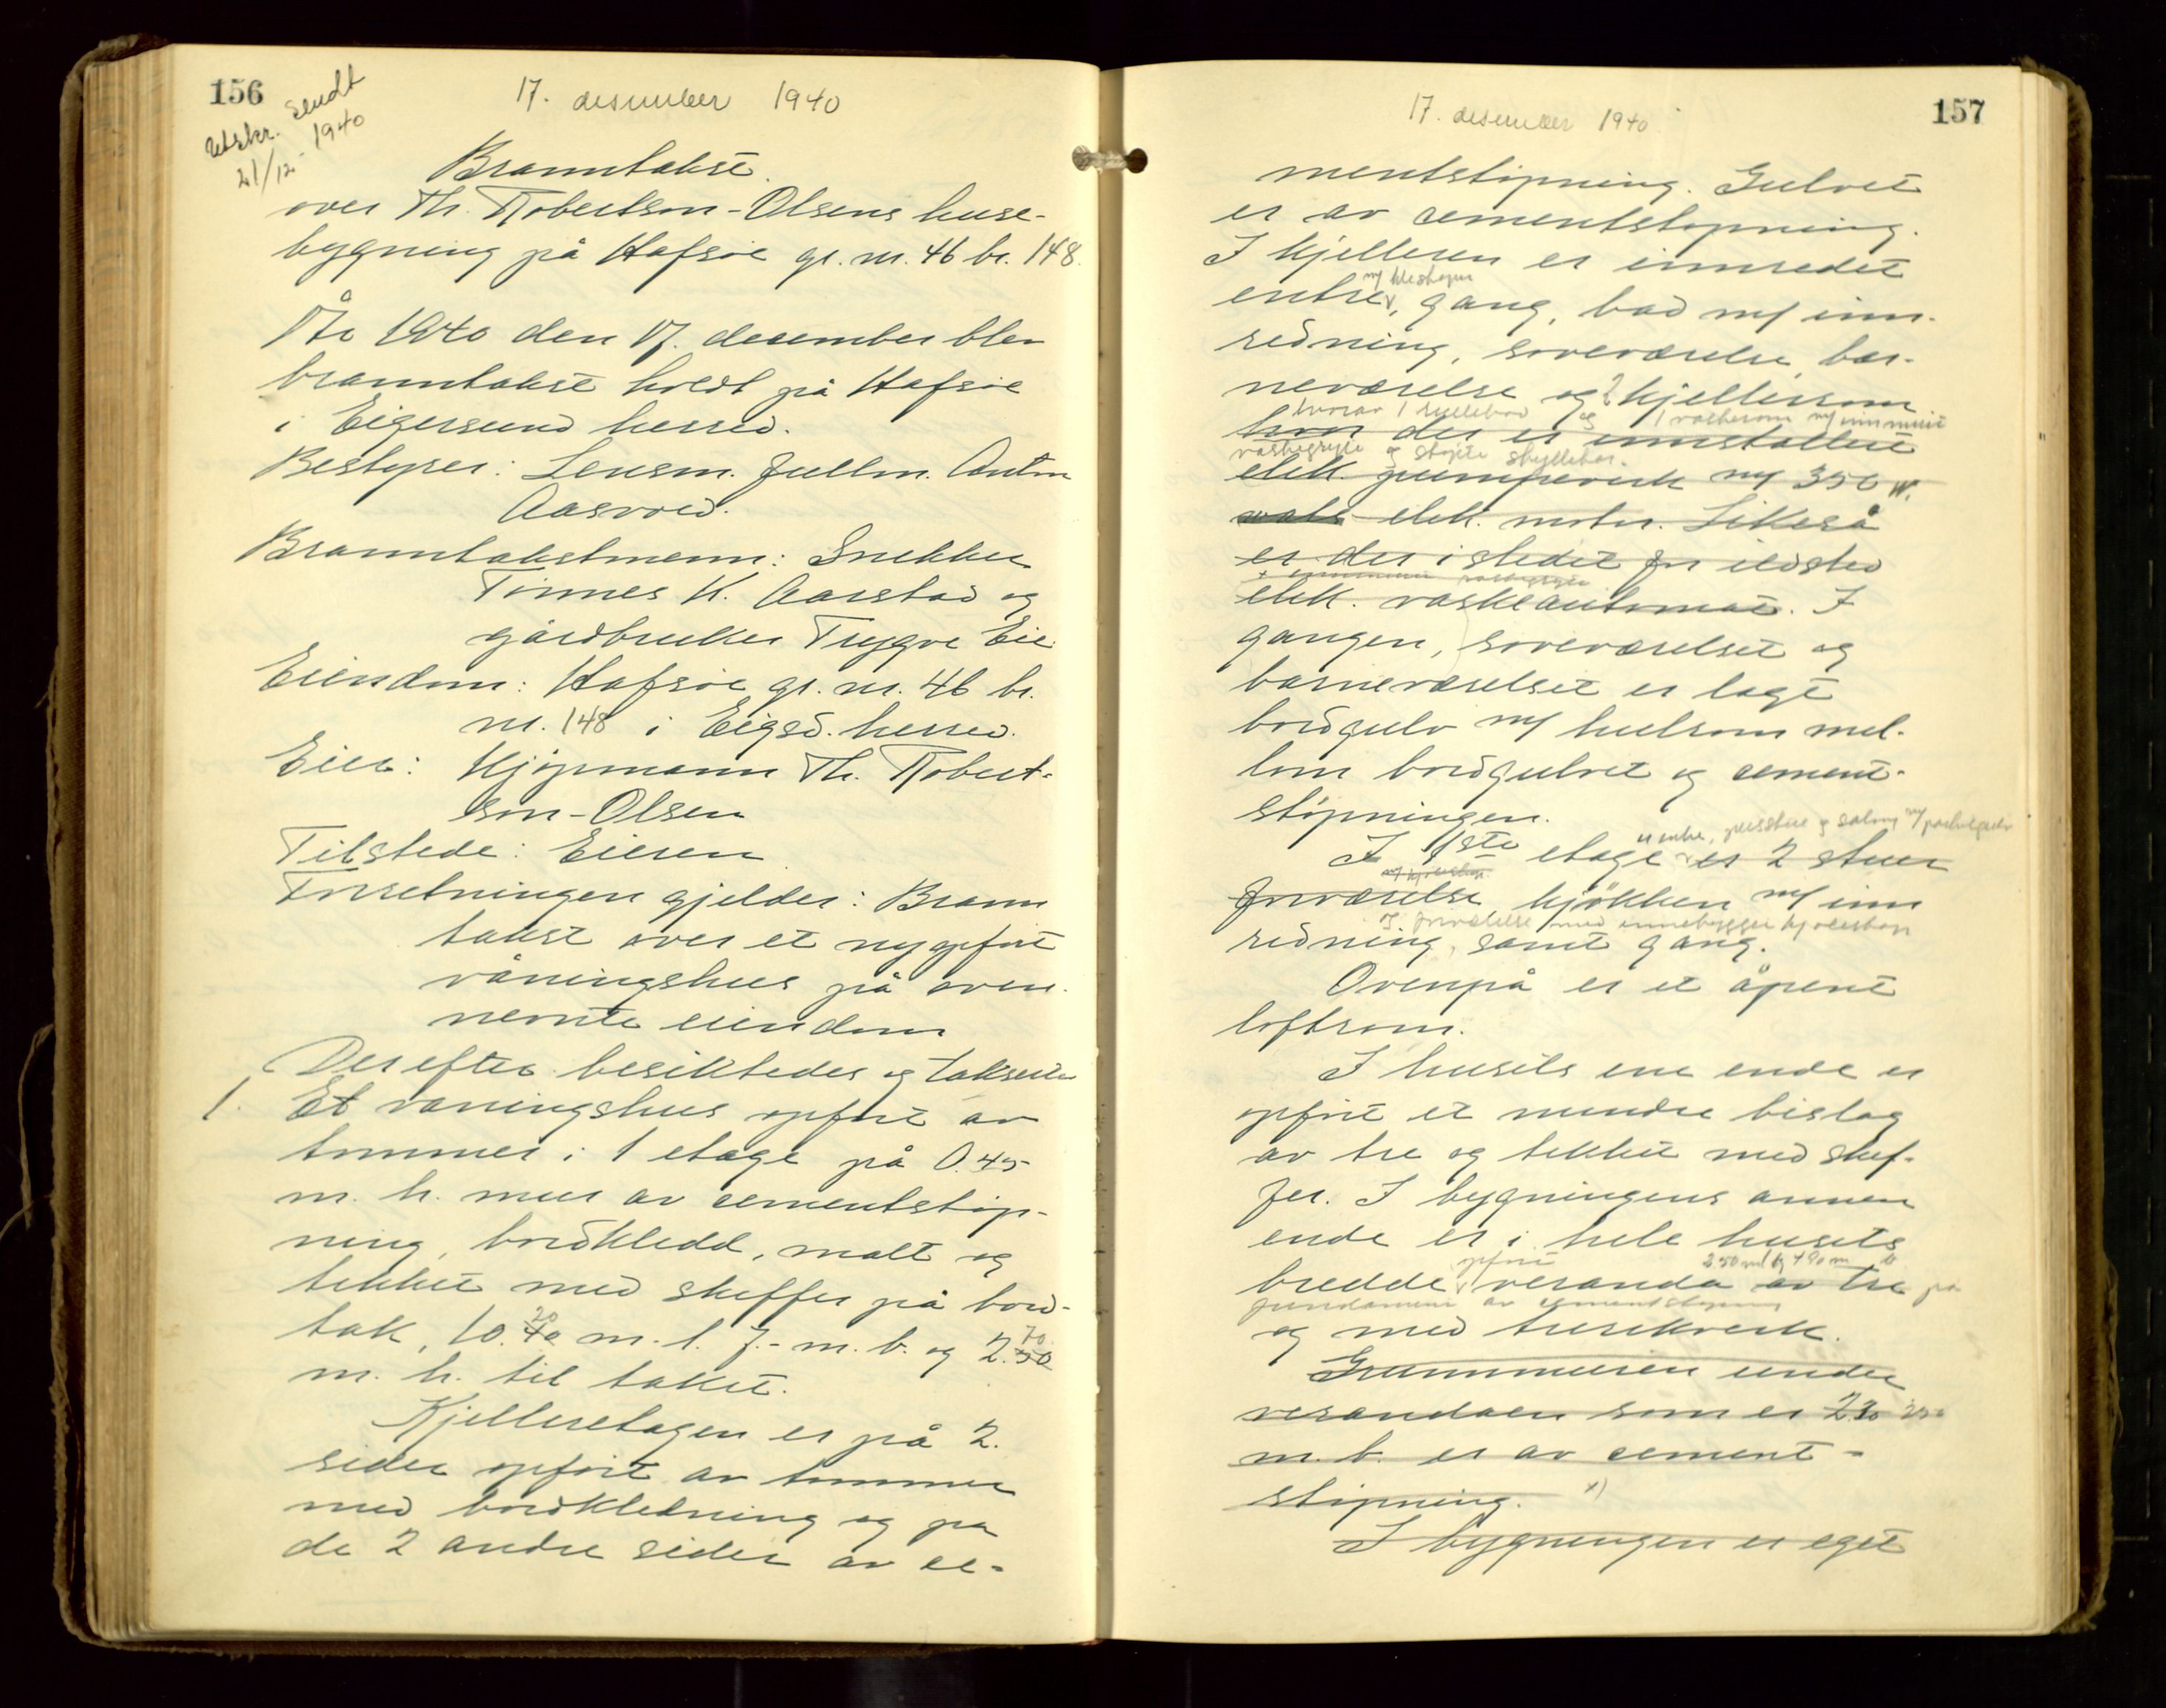 156
Utskr. sendt
21/12 1940
17. desember 1940
Branntakst
over Th. Robertson-Olsens huse-
bygning på Hafsøe gr. nr. 46 br. 148.
År 1940 den 17. desember blev
branntakst holdt på Hafsøe
i Eigersund herred.
Bestyrer: Lensm. fullm. Anton
Aasvold.
Branntakstmenn: Snekker
Tønnes K. Aarstad og
gårdbruker Trygve Eie
Eiendom: Hafsøe gr. nr. 46 br.
nr. 148 i Eigsd. herred.
Eier: Kjøpmann Th. Robert-
son-Olsen
Tilstede: Eieren
Forretningen gjelder: Brann
takst over et nyopført
våningshus på oven-
nevnte eiendom
Derefter besiktedes og takserte
1. Et våningshus opført av
tømmer i 1 etage på 0.45
m. h. mur av cementstøp-
ning, bordkledd, malt og
tekket med skiffer på bord-
20 70
tak, 10.40 m. l. 7.- m. b. og 2.50
m. h. til taket.
Kjelleretagen er på 2.
sider opført av tømmer
med bordkledning og på
de 2 andre sider av ce-
157
17. desember 1940
mentstøpning. Gulvet
er av cementstøpning.
I kjelleren er innredet
m/ kleskap
entre, gang, bad m/ inn-
redning, soveværelse, bar-
neværelse og 2 kjellerrom
hvorav 1 rullebod og 1 vaskerom m/ innmurt
hvor der er innstallert
vaskegryte og støpte skyllekar.
elek. pumpeverk m/ 350 W.
watt elek. motor. Likeså
er der istedet for ildsted
elek. vaskeautomat. I
gangen, soveværelset og
barneværelset er lagt
bordgulv m/ hulrom mel-
lom bordgulvet og cement-
støpningen.
er entre, peisstue og salong m/ parketgulv
I 1ste etage er 2 stuer
forværelse kjøkken m/ inn
og forværelse med innebygget kjoleskap
redning, samt gang.
Ovenpå er et åpent
loftsrom.
I husets ene ende er
opført et mindre bislag
av tre og tekket med skif-
fer. I bygningens annen
ende er i hele husets
opført 2.50 m l og 4.90 m b
bredde veranda av tre på
fundament av cementstøpning
og med tresrekverk.
Grunnmuren under
verandaen som er 2.30 2.50
m. b. er av cement-
støpning. x)
I bygningen er eget